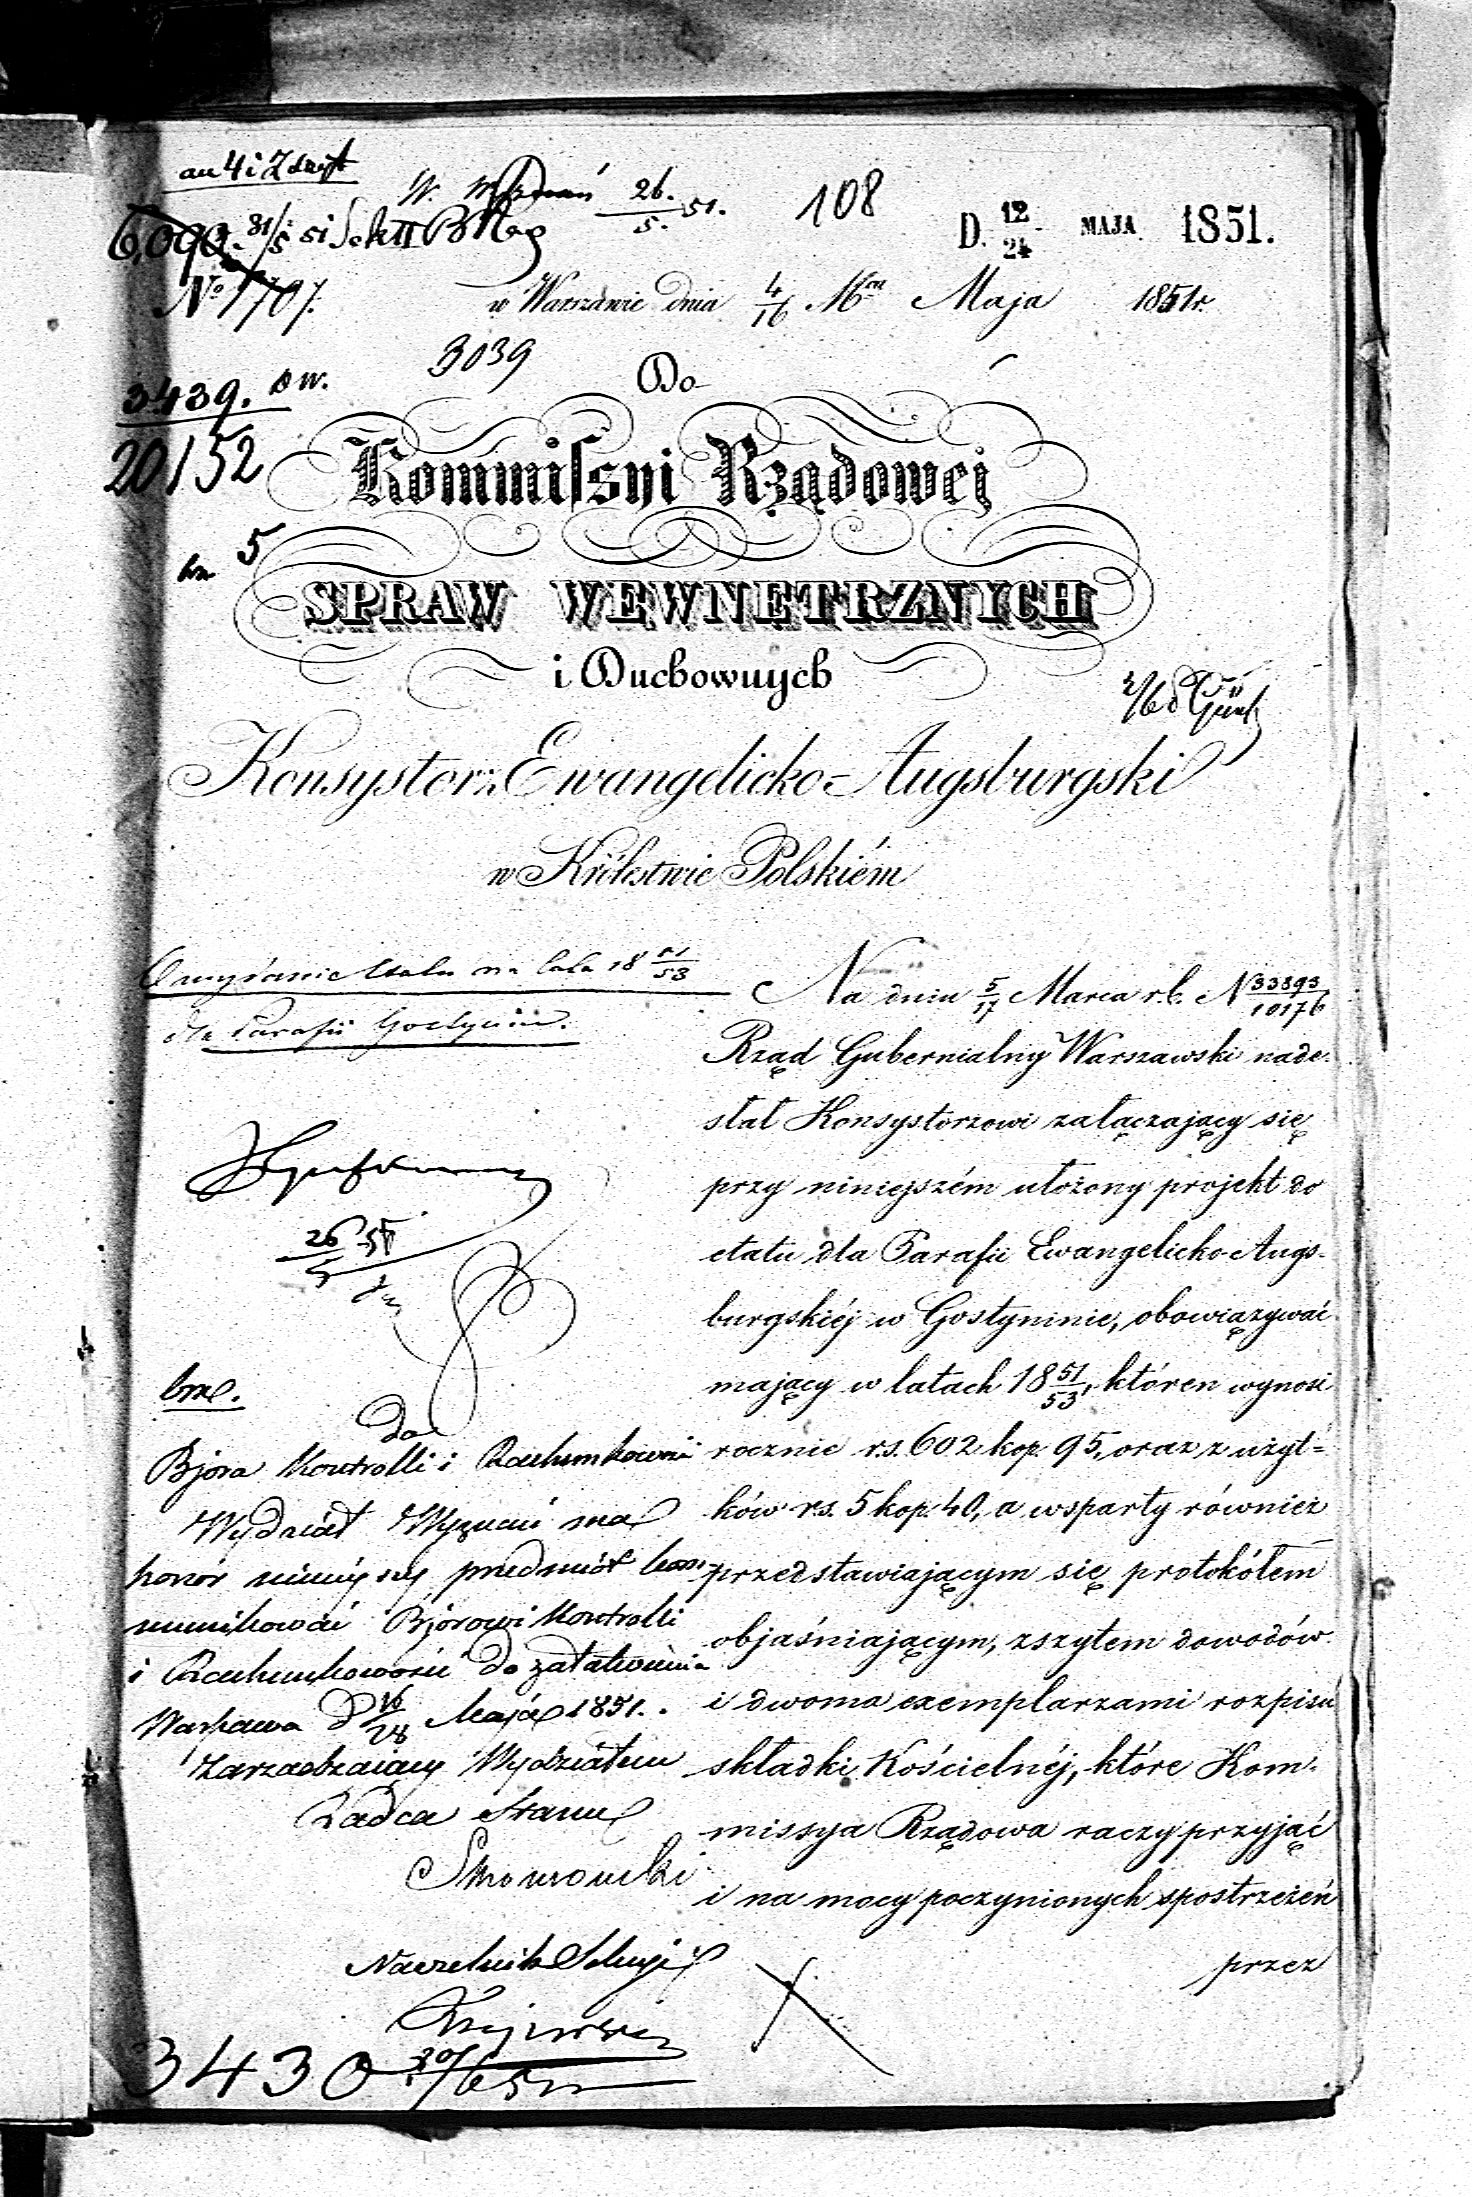 108
26./5. 51.
D. 12/24 MAJA 1851.
6,090. 31/5 51
No 1707.
w Warszawie dnia 4/16 Maja 1851 r.
3039
3439.
20152
5
Do
Kommissyi Rządowej
SPRAW WEWNĘTRZNYCH
i Duchownych
Konsystorz Ewangelicko-Augsburgski
w Królestwie Polskiém
na lata 18 51/53
dla Parafii Gostynin.
26/5 51
Do
Bjóra Kontrolli i Rachunkowości
Wydział Wyznań ma
honor niniejszy przedmiot kom-
munikować Bjórowi Kontrolli
i Rachunkowości do załatwienia
Warszawa d 16/28 Maja 1851.
Zarządzaiący Wydziałem
Radca Stanu
Naczelnik Sekcyi
3430
Na dniu 5/17 Marca r.b. N 33893/10176
Rząd Gubernialny Warszawski nade-
słał Konsystorzowi załączający się
przy niniejszém ułożony projekt do
etatu dla Parafii Ewangelicko-Augs-
burgskiéj w Gostyninie, obowiązywać
mający w latach 18 51/53, któren wynosi
rocznie rs. 602 kop. 95, oraz z użyt=
ków rs. 5 kop. 40, a wsparty również
przedstawiającym się protokółem
objaśniającym, zszytem dowodów
i dwoma exemplarzami rozpisu
składki Kościelnéj, które Kom-
missya Rządowa raczy przyjąć
i na mocy poczynionych spostrzeżeń
przez